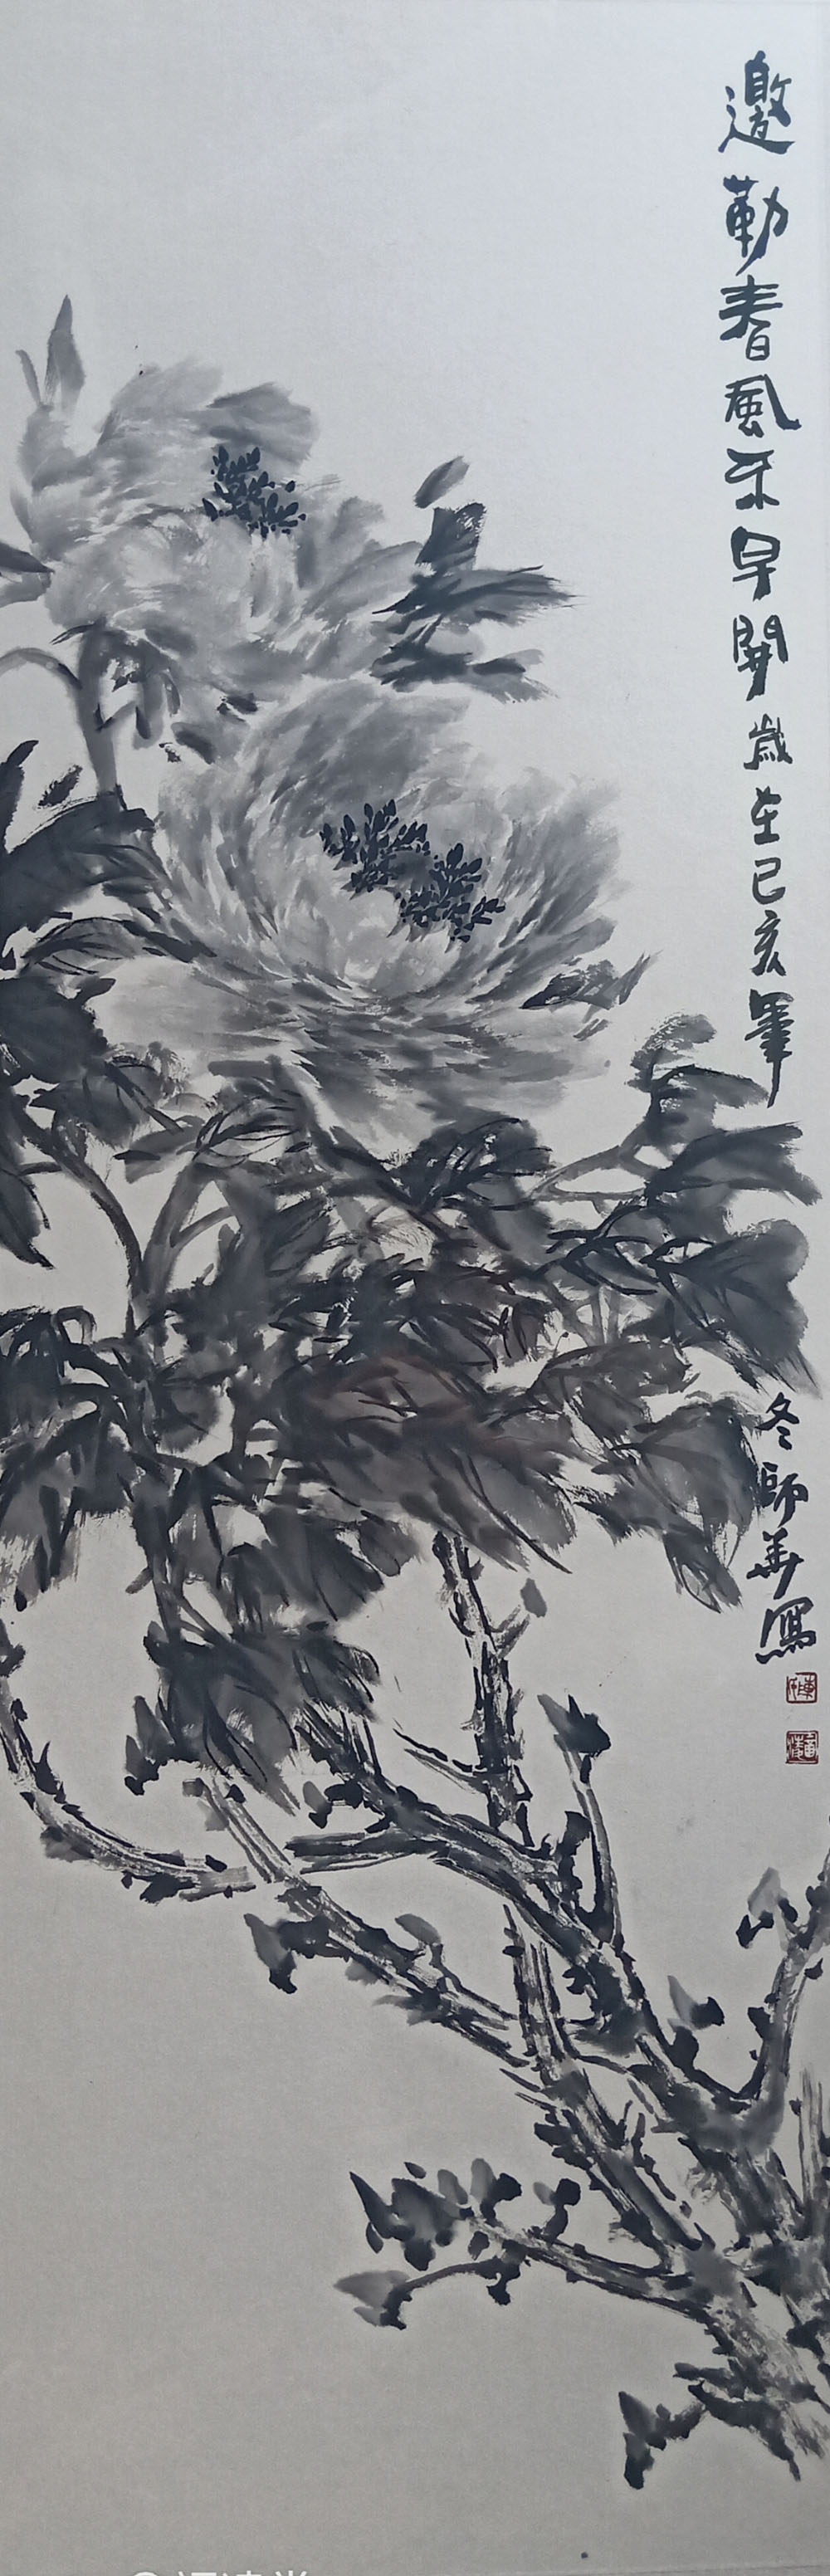 邀勒春風不早開歲在己亥肇
冬師華寫